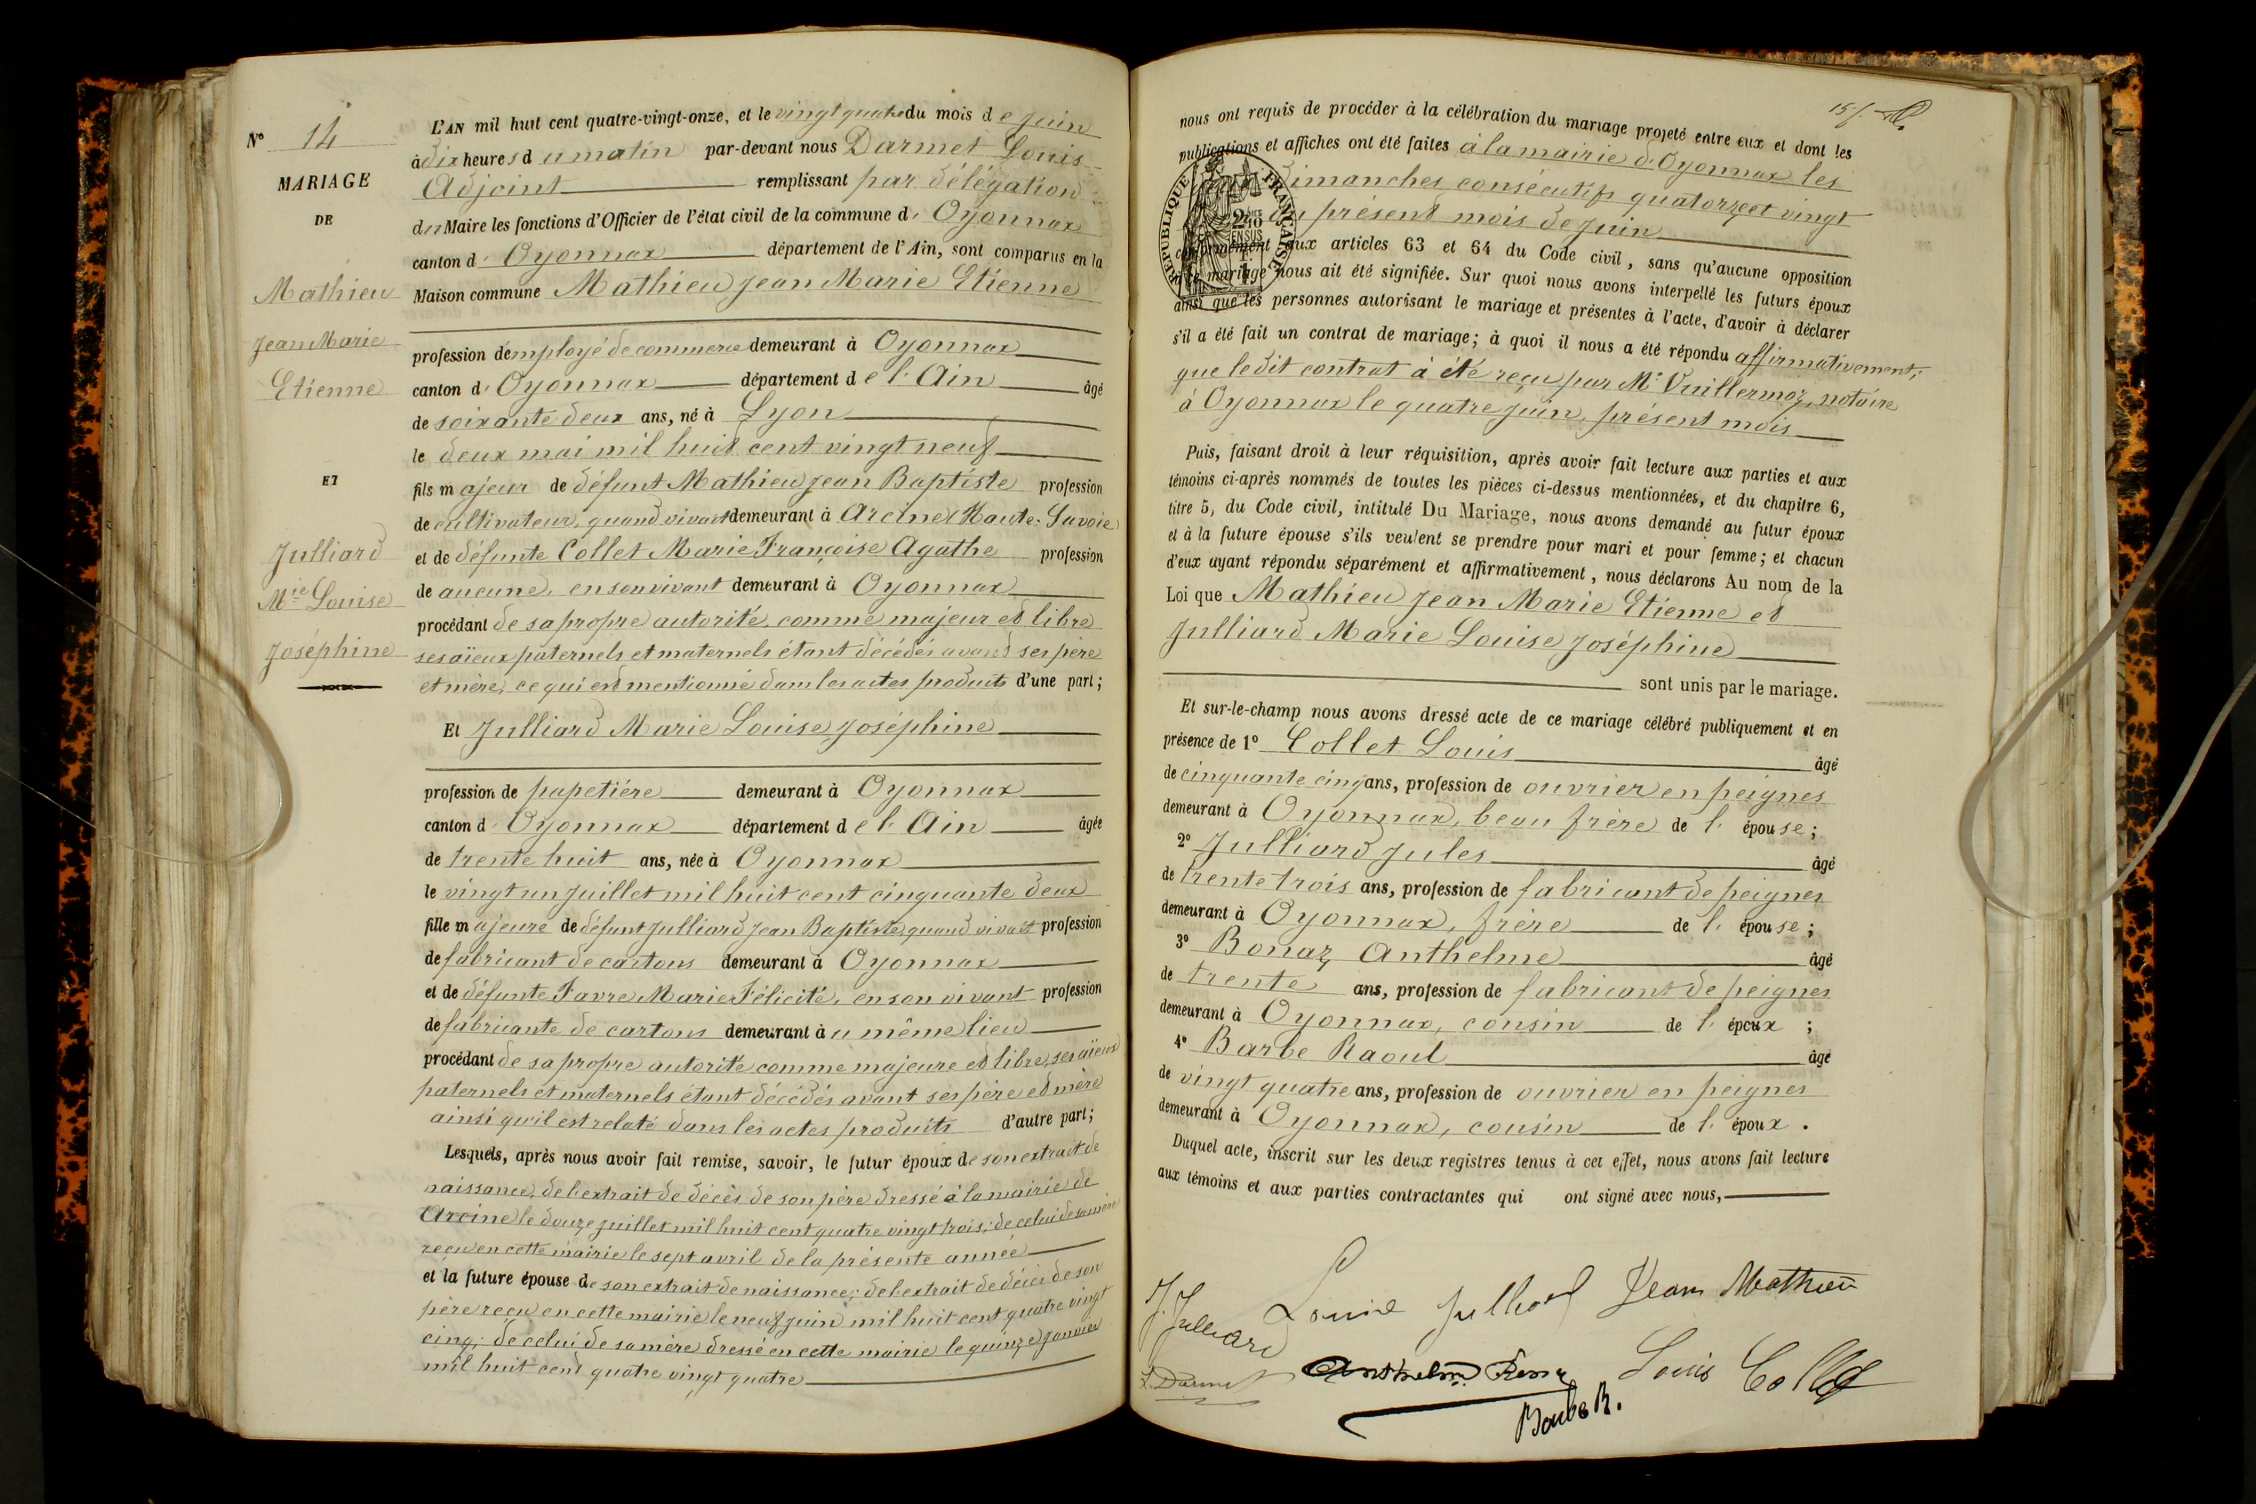 N° 14
MARIAGE
DE
Mathieu
Jean Marie
Etienne
ET
Julliard
Mie Louise
Joséphine
L'AN mil huit cent quatre-vingt-onze, et le vingt quatre du mois de juin
à dix heures du matin par-devant nous Darmet Louis
Adjoint remplissant par délégation
du Maire les fonctions d'Officier de l'état civil de la commune d'Oyonnax
canton d'Oyonnax département de l'Ain, sont comparus en la
Maison commune Mathieu Jean Marie Etienne
profession d'employé de commerce demeurant à Oyonnax
canton d'Oyonnax département de l'Ain âgé
de soixante deux ans, né à Lyon
le deux mai mil huit cent vingt neuf
fils majeur de défunt Mathieu Jean Baptiste profession
de cultivateur, quand vivait demeurant à Arcine (Haute-Savoie)
et de défunte Collet Marie Françoise Agathe profession
de aucune, en son vivant demeurant à Oyonnax
procédant de sa propre autorité, comme majeur et libre
ses aïeux paternels et maternels étant décédés avant ses père
et mère, ce qui est mentionné dans les actes produits d'une part;
Et Julliard Marie Louise Joséphine
profession de papetière demeurant à Oyonnax
canton d'Oyonnax département de l'Ain âgée
de trente huit ans, née à Oyonnax
le vingt un juillet mil huit cent cinquante deux
fille majeure de défunt Julliard Jean Baptiste, quand vivait profession
de fabricant de cartons demeurant à Oyonnax
et de défunte Favre Marie Félicité, en son vivant profession
de fabricante de cartons demeurant au même lieu
procédant de sa propre autorité comme majeure et libre, ses aïeux
paternels et maternels étant décédés avant ses père et mère
ainsi qu'il est relaté dans les actes produits d'autre part;
Lesquels, après nous avoir fait remise, savoir, le futur époux de son extrait de
naissance, de l'extrait de décès de son père dressé à la mairie de
Arcine le douze juillet mil huit cent quatre vingt trois; de celui de sa mère
reçu en cette mairie le sept avril de la présente année
et la future épouse de son extrait de naissance; de l'extrait de décès de son
père reçu en cette mairie le neuf juin mil huit cent quatre vingt
cinq; de celui de sa mère dressé en cette mairie le quinze janvier
mil huit cent quatre vingt quatre
15/.
nous ont requis de procéder à la célébration du mariage projeté entre eux et dont les
publications et affiches ont été faites à la mairie d'Oyonnax les
dimanches consécutifs quatorze et vingt
du présent mois de juin
conformément aux articles 63 et 64 du Code civil, sans qu'aucune opposition
mariage nous ait été signifiée. Sur quoi nous avons interpellé les futurs époux
ainsi que les personnes autorisant le mariage et présentes à l'acte, d'avoir à déclarer
s'il a été fait un contrat de mariage; à quoi il nous a été répondu affirmativement;
que le dit contrat à été reçu par Me Vuillermoz, notaire
à Oyonnax le quatre juin, présent mois
REPUBLIQUE FRANÇAISE
Puis, faisant droit à leur réquisition, après avoir fait lecture aux parties et aux
témoins ci-après nommés de toutes les pièces ci-dessus mentionnées, et du chapitre 6,
titre 5, du Code civil, intitulé Du Mariage, nous avons demandé au futur époux
et à la future épouse s'ils veulent se prendre pour mari et pour femme; et chacun
d'eux ayant répondu séparément et affirmativement, nous déclarons Au nom de la
Loi que Mathieu Jean Marie Etienne et
Julliard Marie Louise Joséphine
sont unis par le mariage.
Et sur-le-champ nous avons dressé acte de ce mariage célébré publiquement et en
présence de 1° Collet Louis âgé
de cinquante cinq ans, profession de ouvrier en peignes
demeurant à Oyonnax, beau frère de l'épouse;
2° Julliard Jules âgé
de trente trois ans, profession de fabricant de peignes
demeurant à Oyonnax, frère de l'épouse;
3° Bonaz Anthelme âgé
de trente ans, profession de fabricant de peignes
demeurant à Oyonnax, cousin de l'époux;
4° Barbe Raoul âgé
de vingt quatre ans, profession de ouvrier en peignes
demeurant à Oyonnax, cousin de l'époux.
Duquel acte, inscrit sur les deux registres tenus à cet effet, nous avons fait lecture
aux témoins et aux parties contractantes qui ont signé avec nous,
J. Julliard Louise Julliard Jean Mathieu
L. Darmet Louis Collet
Barbe R.